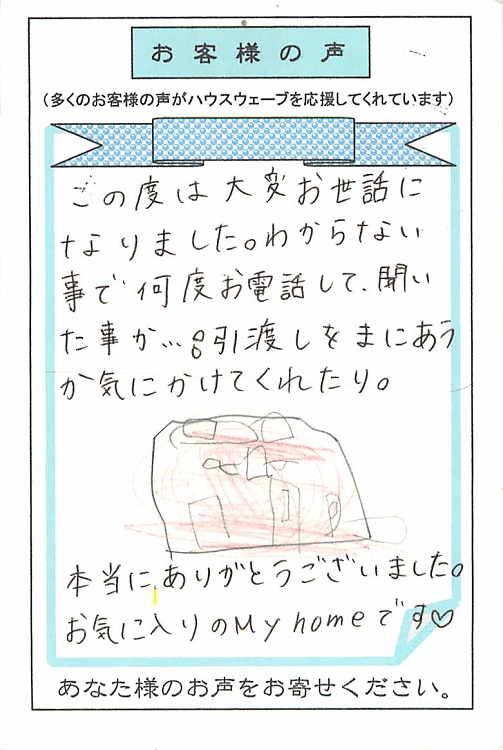 お客様の声
(多くのお客様の声がハウスウェーブを応援してくれています)
この度は大変お世話に
なりました。わからない
事で何度お電話して、聞い
た事か…。引渡しをまにあう
か気にかけてくれたり。
本当に、ありがとうございました。
お気に入りのMy homeです♡
あなた様のお声をお寄せください。